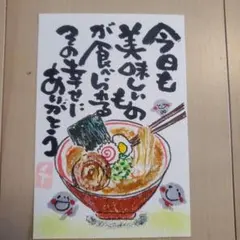 今日も
美味しいもの
が食べられる
その幸せに
ありがとう